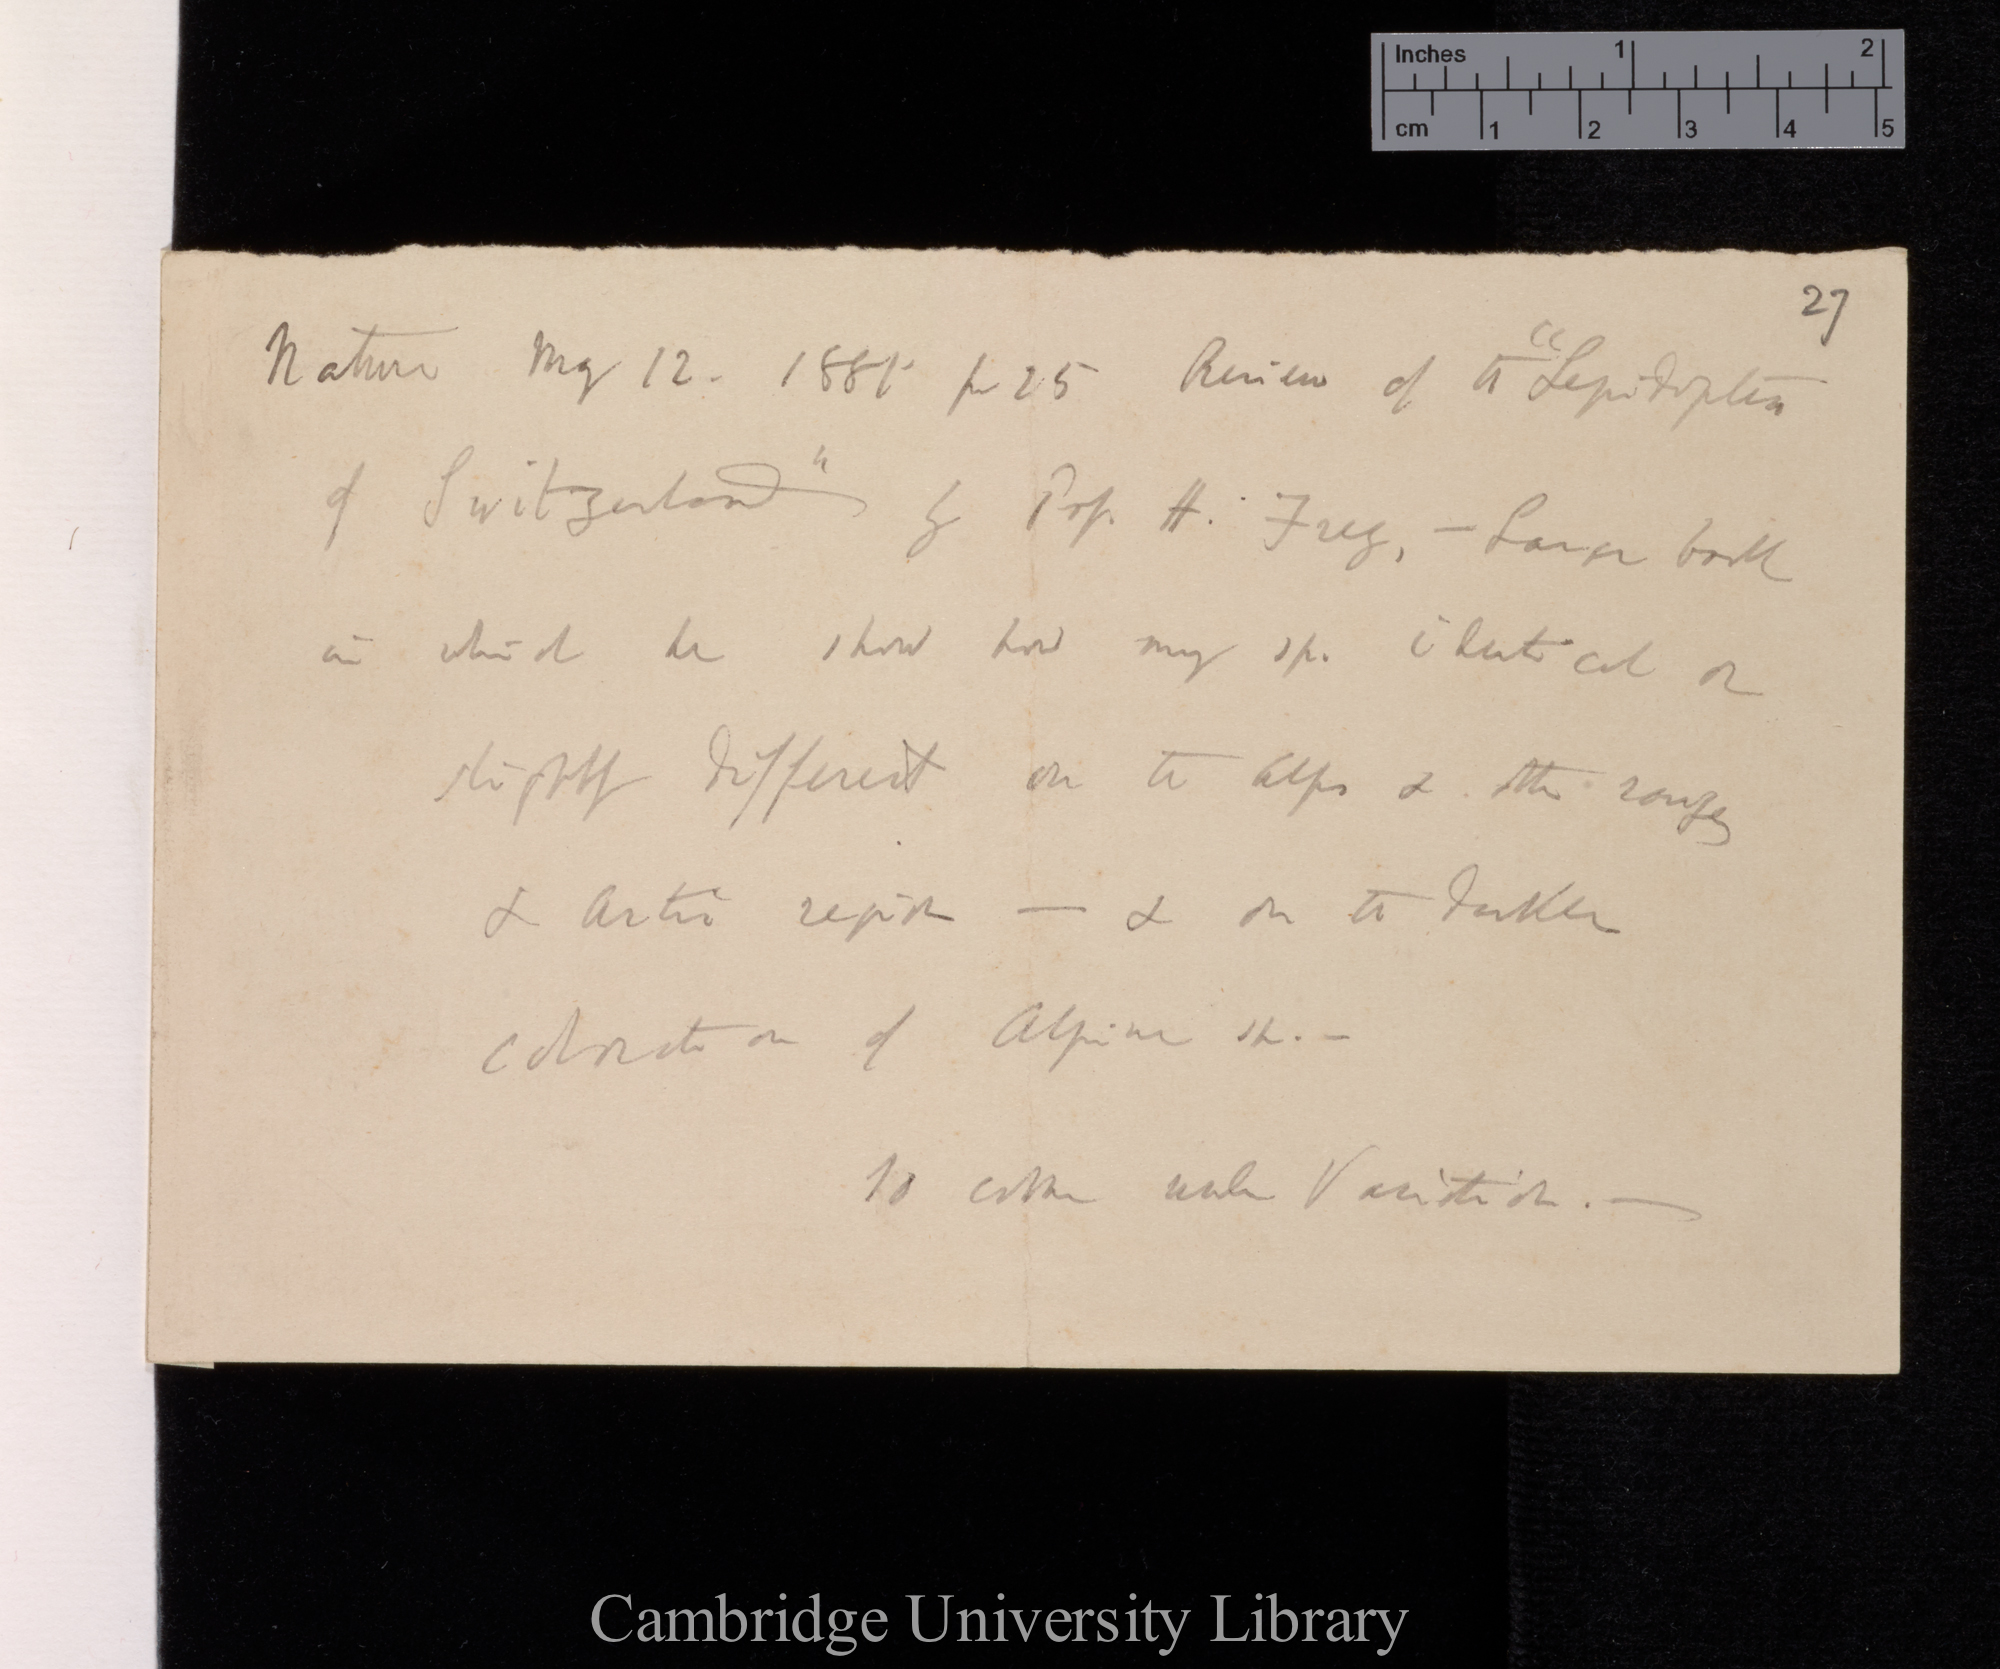 Inches 1 2
cm 1 2 3 4 5
27
Nature May 12. 1881 p 25 Review of the "Lepidoptera
of Switzerland" by Prof. H. Frey, — Large book
in which he shows how many sp. identical or
slightly different on the Alps & other ranges
& Arctic region — & on the darker
coloration of Alpine sp. —
to come under Variation. —
Cambridge University Library